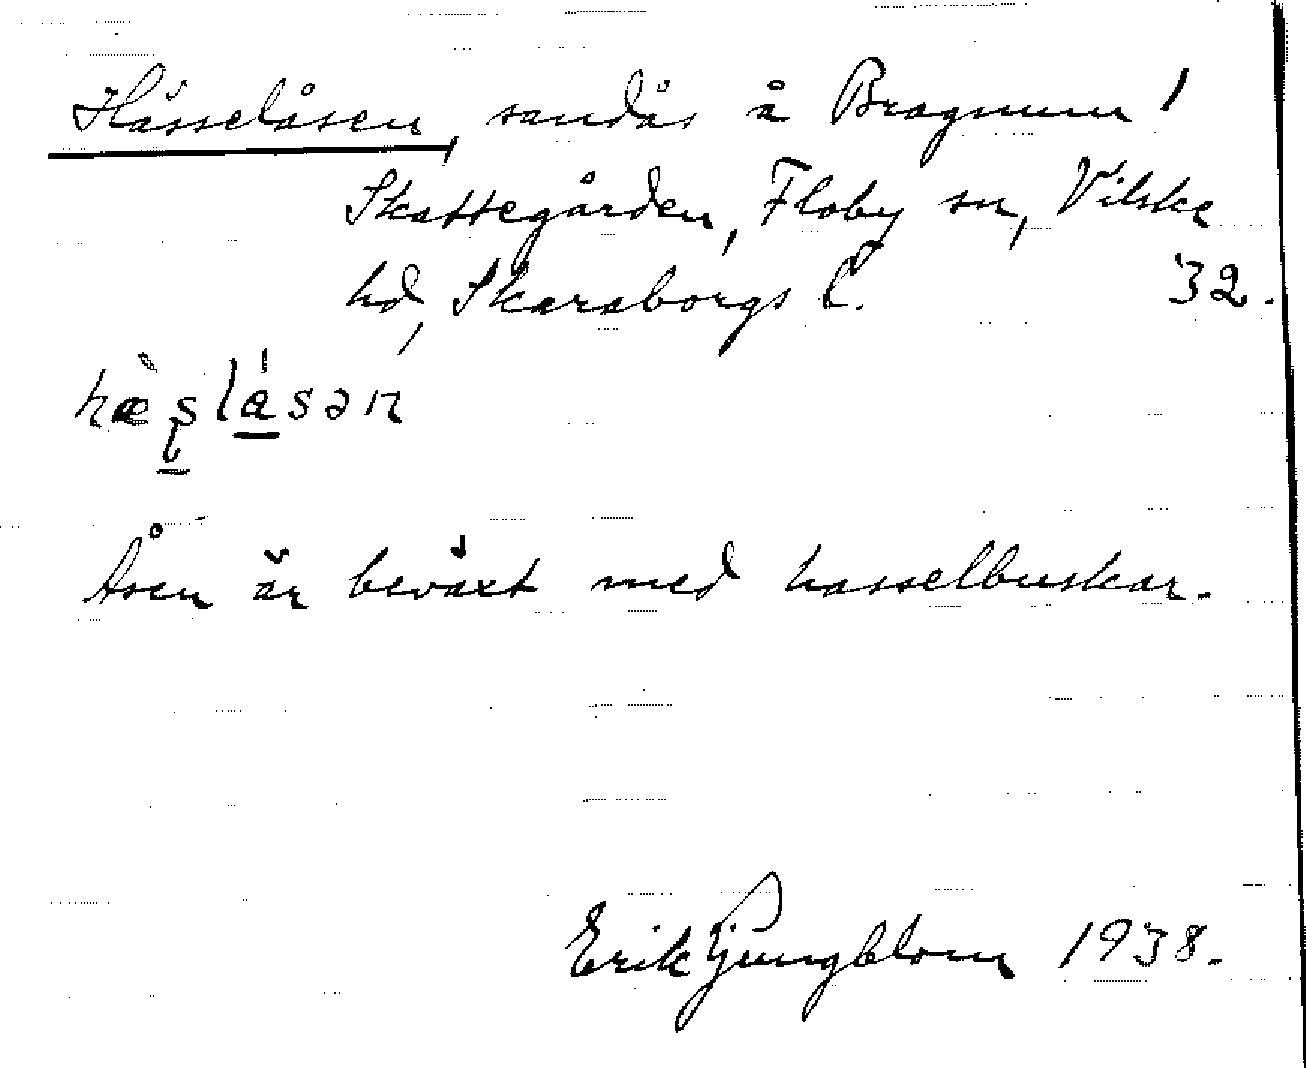 Hässelåsen, sandås å Bragnum /
Skattegården, Floby sn, Vilske
hd, Skaraborgs l. 32.
hæ̀slåsən
Åsen är beväxt med hasselbuskar.
Erik Ljungblom 1938.